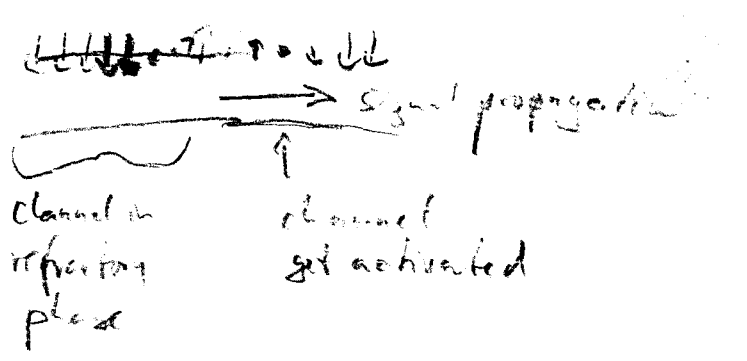 signal propagation
channel in
refractory
phase
channel
get activated